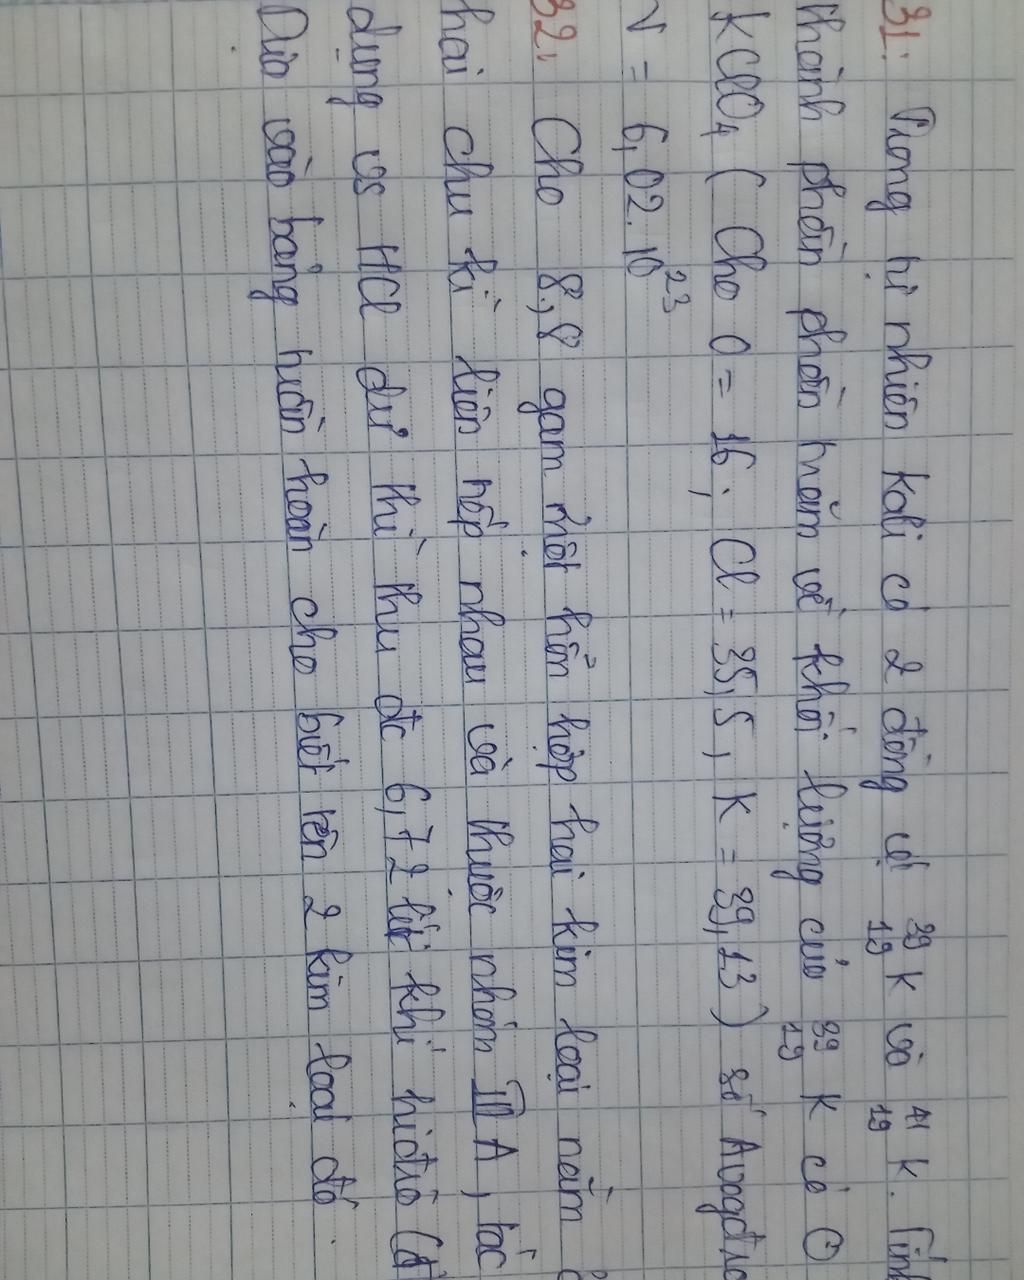 31: Trong tự nhiên kali có 2 đồng vị 39 19 K và 41 19 K. Tính
thành phần phần trăm về khối lượng của 39 19 K có ở
KClO4 ( Cho O = 16, Cl = 35,5, K = 39,13) số Avogađro
N = 6,02.10^23
32: Cho 8,8 gam một hỗn hợp hai kim loại nằm
hai chu kì liên tiếp nhau và thuộc nhóm IIIA, tác
dụng vs HCl dư thì thu đc 6,72 lít khí hiđrô (đ
Dựa vào bảng tuần hoàn cho biết tên 2 kim loại đó.